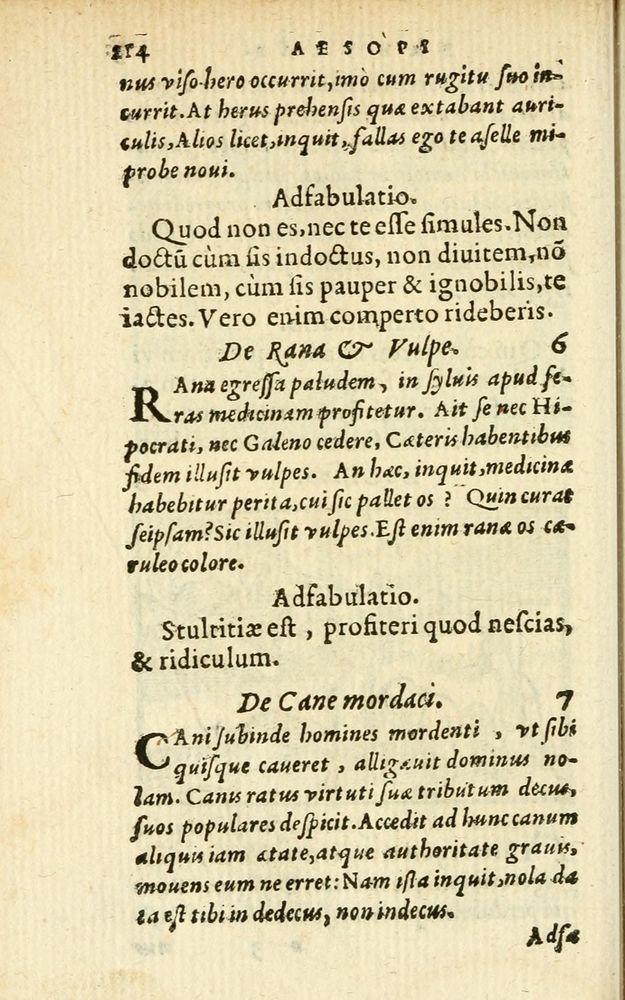 214 AESOPI
nus viſo hero occurrit, imò cum rugitu ſuo in-
currit. At herus prehenſis quæ extabant auri-
culis, Alios licet, inquit, fallas ego te aſelle mi-
probe noui.
Adfabulatio.
Quod non es, nec te eſſe ſimules. Non
doctū cùm ſis indoctus, non diuitem, nō
nobilem, cùm ſis pauper & ignobilis, te
iactes. Vero enim comperto rideberis.
De Rana & Vulpe. 6
RAna egreſſa paludem, in ſyluis apud fe-
ras medicinam profitetur. Ait ſe nec Hi-
pocrati, nec Galeno cedere, Cæteris habentibus
fidem illuſit vulpes. An hæc, inquit, medicinæ
habebitur perita, cui ſic pallet os? Quin curat
ſeipſam? Sic illuſit vulpes. Eſt enim ranæ os cæ-
ruleo colore.
Adfabulatio.
Stultitiæ eſt, profiteri quod neſcias,
& ridiculum.
De Cane mordaci. 7
CAni ſubinde homines mordenti, vt ſibi
quiſque caueret, alligauit dominus no-
lam. Canis ratus virtuti ſuæ tributum decus,
ſuos populares deſpicit. Accedit ad hunc canum
aliquis iam ætate, atque authoritate grauis,
mouens eum ne erret: Nam iſta inquit, nola da
ta eſt tibi in dedecus, non indecus.
Adfa